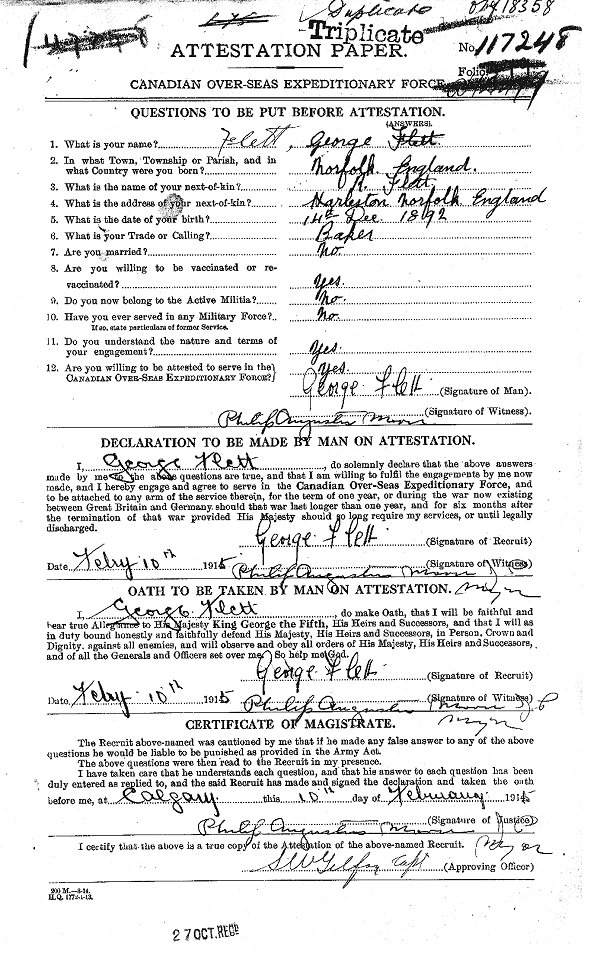 Duplicate
Triplicate
ATTESTATION PAPER.
No. 117248
Folio
CANADIAN OVER-SEAS EXPEDITIONARY FORCE
QUESTIONS TO BE PUT BEFORE ATTESTATION.
(ANSWERS).
1. What is your name? Flett, George Flett
2. In what Town, Township or Parish, and in
what Country were you born? Norfolk England.
3. What is the name of your next-of-kin? Flett
4. What is the address of your next-of-kin? Harleston Norfolk England
5. What is the date of your birth? 14th Dec. 1892
6. What is your Trade or Calling? Baker
7. Are you married? No.
8. Are you willing to be vaccinated or re-
vaccinated? Yes.
9. Do you now belong to the Active Militia? No.
10. Have you ever served in any Military Force? No.
If so, state particulars of former Service.
11. Do you understand the nature and terms of
your engagement? Yes.
12. Are you willing to be attested to serve in the
CANADIAN OVER-SEAS EXPEDITIONARY FORCE? Yes.
George Flett (Signature of Man).
Philip Augustus (Signature of Witness).
DECLARATION TO BE MADE BY MAN ON ATTESTATION.
I, George Flett, do solemnly declare that the above answers
made by me to the above questions are true, and that I am willing to fulfil the engagements by me now
made, and I hereby engage and agree to serve in the Canadian Over-Seas Expeditionary Force, and
to be attached to any arm of the service therein, for the term of one year, or during the war now existing
between Great Britain and Germany should that war last longer than one year, and for six months after
the termination of that war provided His Majesty should so long require my services, or until legally
discharged.
George Flett (Signature of Recruit)
Date Feby 10th 1915 Philip Augustus (Signature of Witness)
OATH TO BE TAKEN BY MAN ON ATTESTATION.
I, George Flett, do make Oath, that I will be faithful and
bear true Allegiance to His Majesty King George the Fifth, His Heirs and Successors, and that I will as
in duty bound honestly and faithfully defend His Majesty, His Heirs and Successors, in Person, Crown and
Dignity, against all enemies, and will observe and obey all orders of His Majesty, His Heirs and Successors,
and of all the Generals and Officers set over me. So help me God.
George Flett (Signature of Recruit)
Date Feby 10th 1915 Philip Augustus (Signature of Witness)
CERTIFICATE OF MAGISTRATE.
The Recruit above-named was cautioned by me that if he made any false answer to any of the above
questions he would be liable to be punished as provided in the Army Act.
The above questions were then read to the Recruit in my presence.
I have taken care that he understands each question, and that his answer to each question has been
duly entered as replied to, and the said Recruit has made and signed the declaration and taken the oath
before me, at Calgary this 10th day of February 1915
Philip Augustus (Signature of Justice)
I certify that the above is a true copy of the Attestation of the above-named Recruit.
Capt (Approving Officer)
200 M.—8-14.
H.Q. 1772-1-13.
27 OCT. REC'D